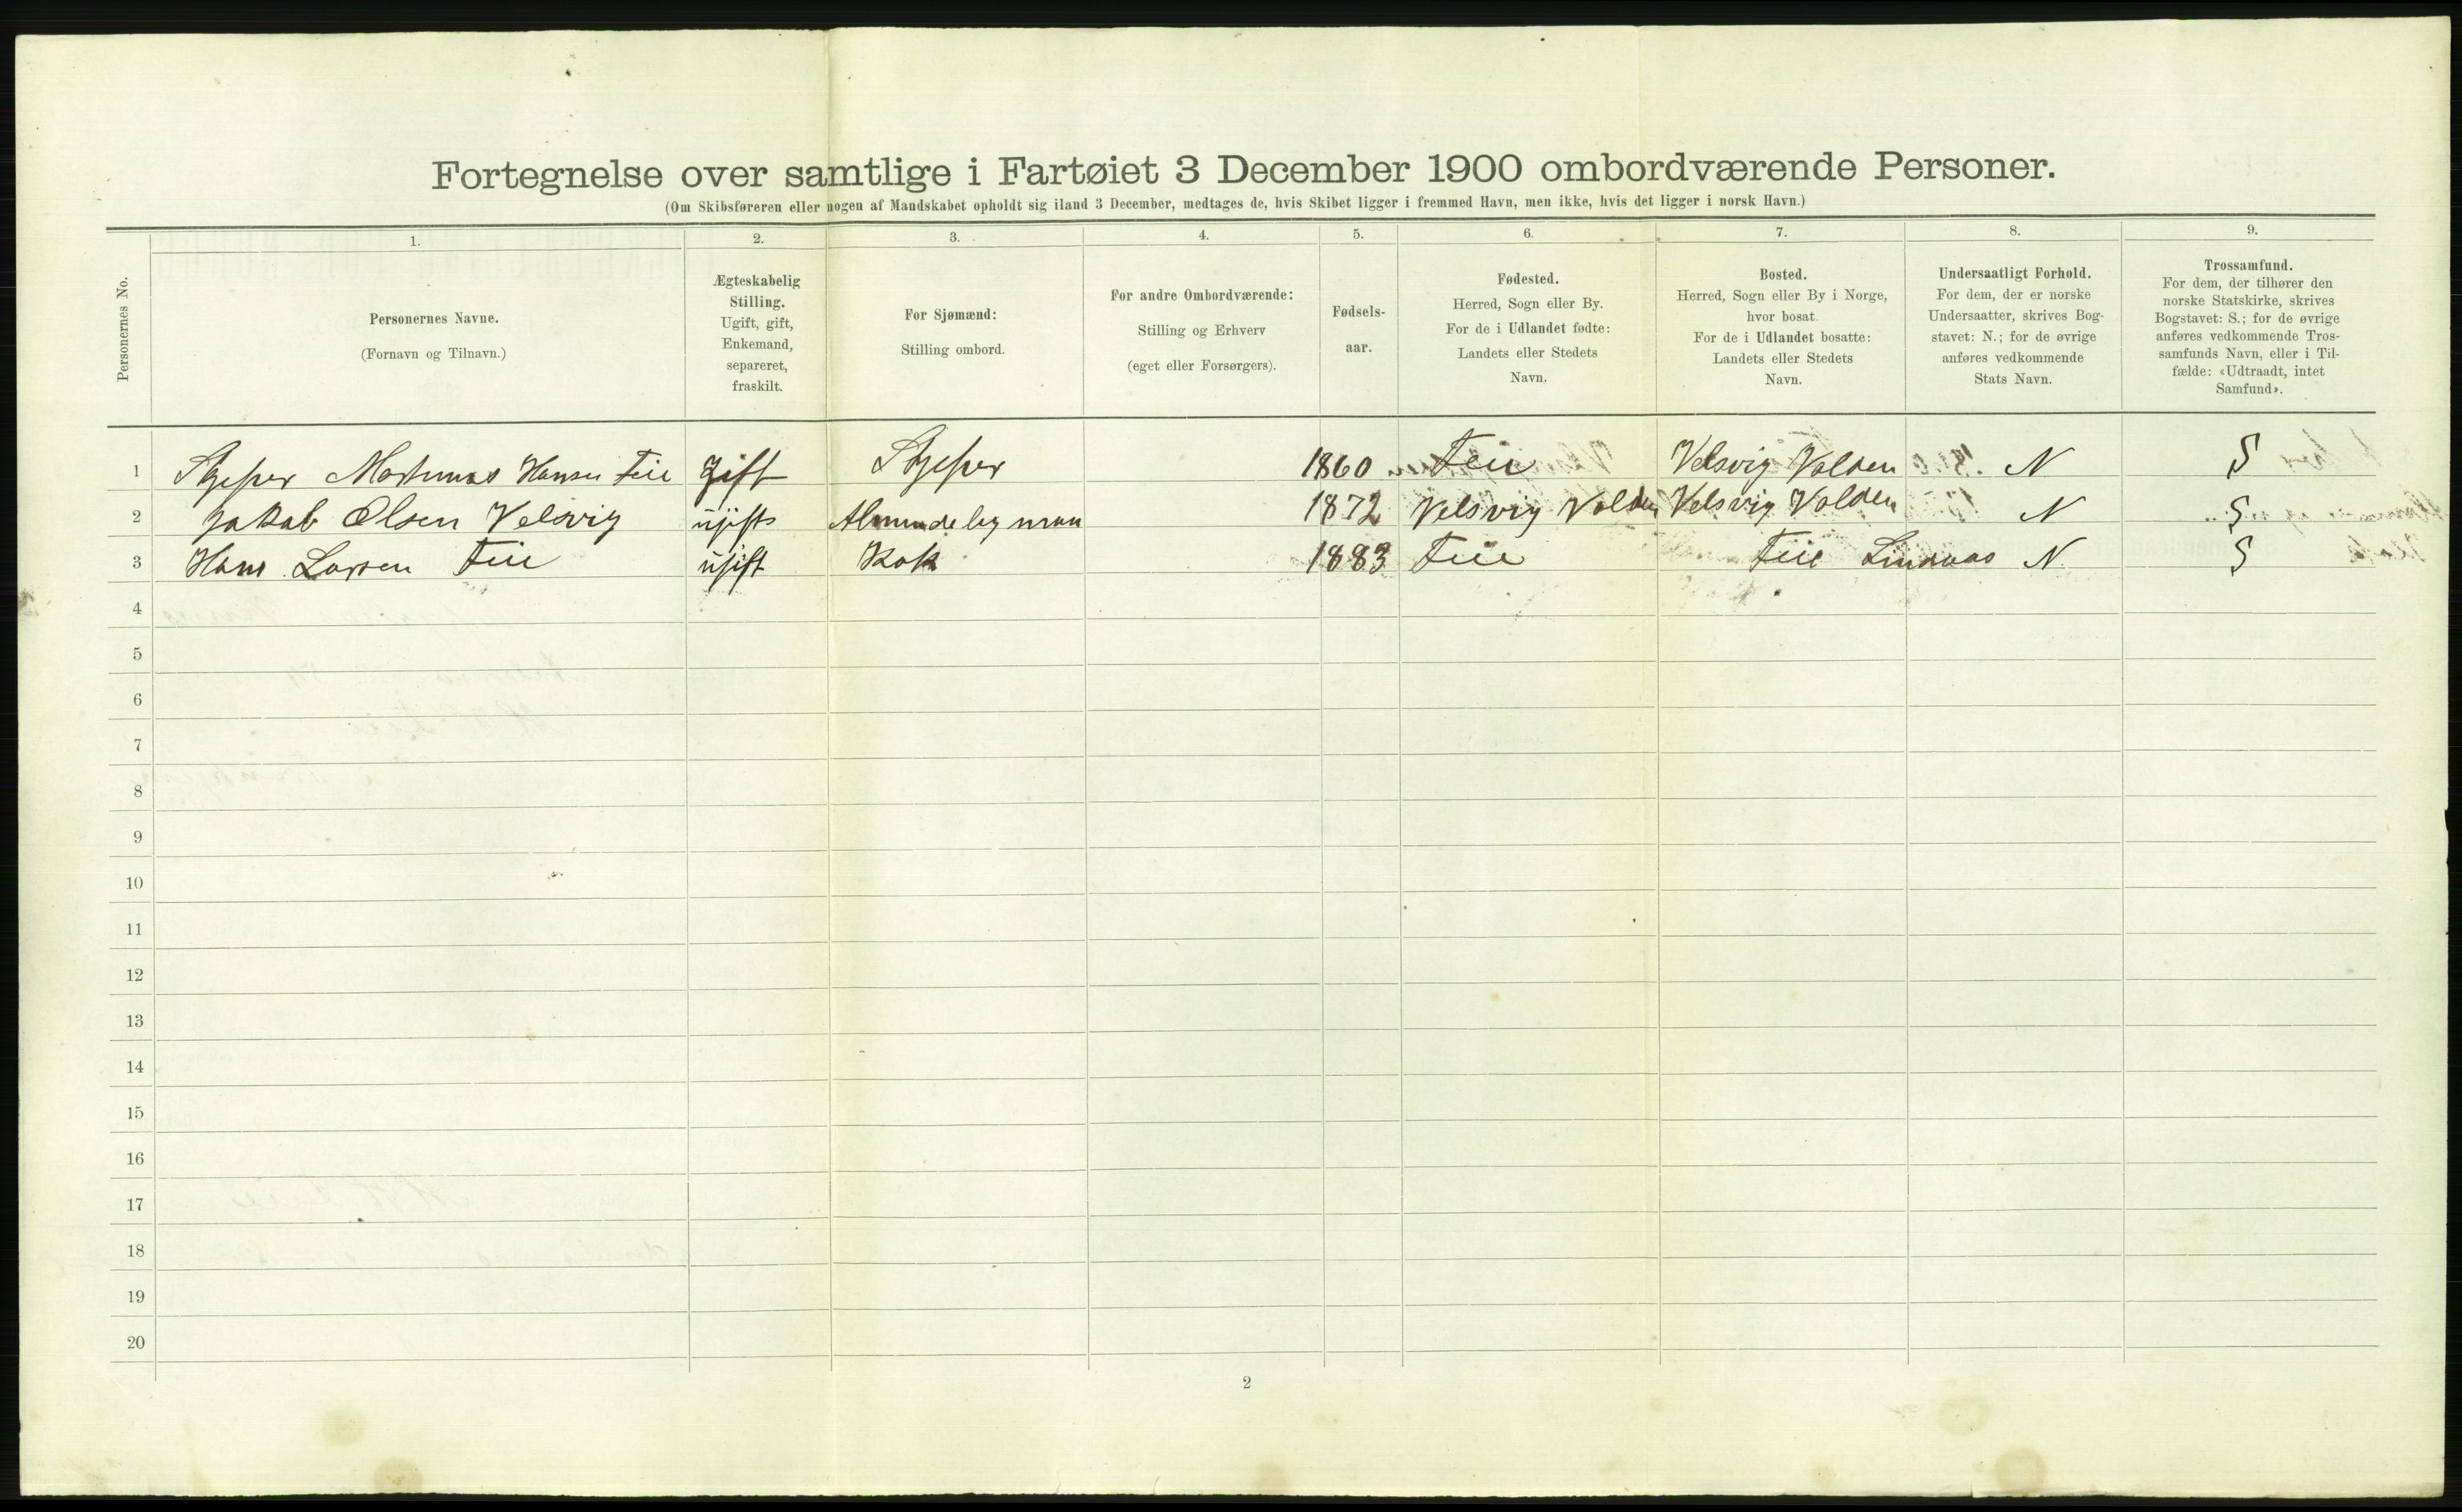 Fortegnelse over samtlige i Fartøiet 3 December 1900 ombordværende Personer.
(Om Skibsføreren eller nogen af Mandskabet opholdt sig iland 3 December, medtages de, hvis Skibet ligger i fremmed Havn, men ikke, hvis det ligger i norsk Havn.)
1. 2. 3. 4. 5. 6. 7. 8. 9.
Personernes No.
Personernes Navne.
(Fornavn og Tilnavn.)
Ægteskabelig
Stilling.
Ugift, gift,
Enkemand,
separeret,
fraskilt.
For Sjømænd:
Stilling ombord.
For andre Ombordværende:
Stilling og Erhverv
(eget eller Forsørgers).
Fødsels-
aar.
Fødested.
Herred, Sogn eller By.
For de i Udlandet fødte:
Landets eller Stedets
Navn.
Bosted.
Herred, Sogn eller By i Norge,
hvor bosat.
For de i Udlandet bosatte:
Landets eller Stedets
Navn.
Undersaatligt Forhold.
For dem, der er norske
Undersaatter, skrives Bog-
stavet: N.; for de øvrige
anføres vedkommende
Stats Navn.
Trossamfund.
For dem, der tilhører den
norske Statskirke, skrives
Bogstavet: S.; for de øvrige
anføres vedkommende Tros-
samfunds Navn, eller i Til-
fælde: «Udtraadt, intet
Samfund».
1 Martinus Hansen Feie Gift 1860 Feie Velsvig Volden N S
2 Jakob Olsen Velsvig ugift 1872 Velsvig Volden Velsvig Volden N S
3 Hans Larsen Feie ugift Kok 1883 Feie Feie Lindaas N S
4
5
6
7
8
9
10
11
12
13
14
15
16
17
18
19
20
2